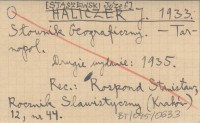 [STASZEWSKI Józef]
HALICZER J. 1933.
Słownik Geograficzny. — Tar-
nopol.
Drugie wydanie: 1935.
Rec.: Rospond Stanisław,
Rocznik Slawistyczny (Kraków)
12, nr 44.